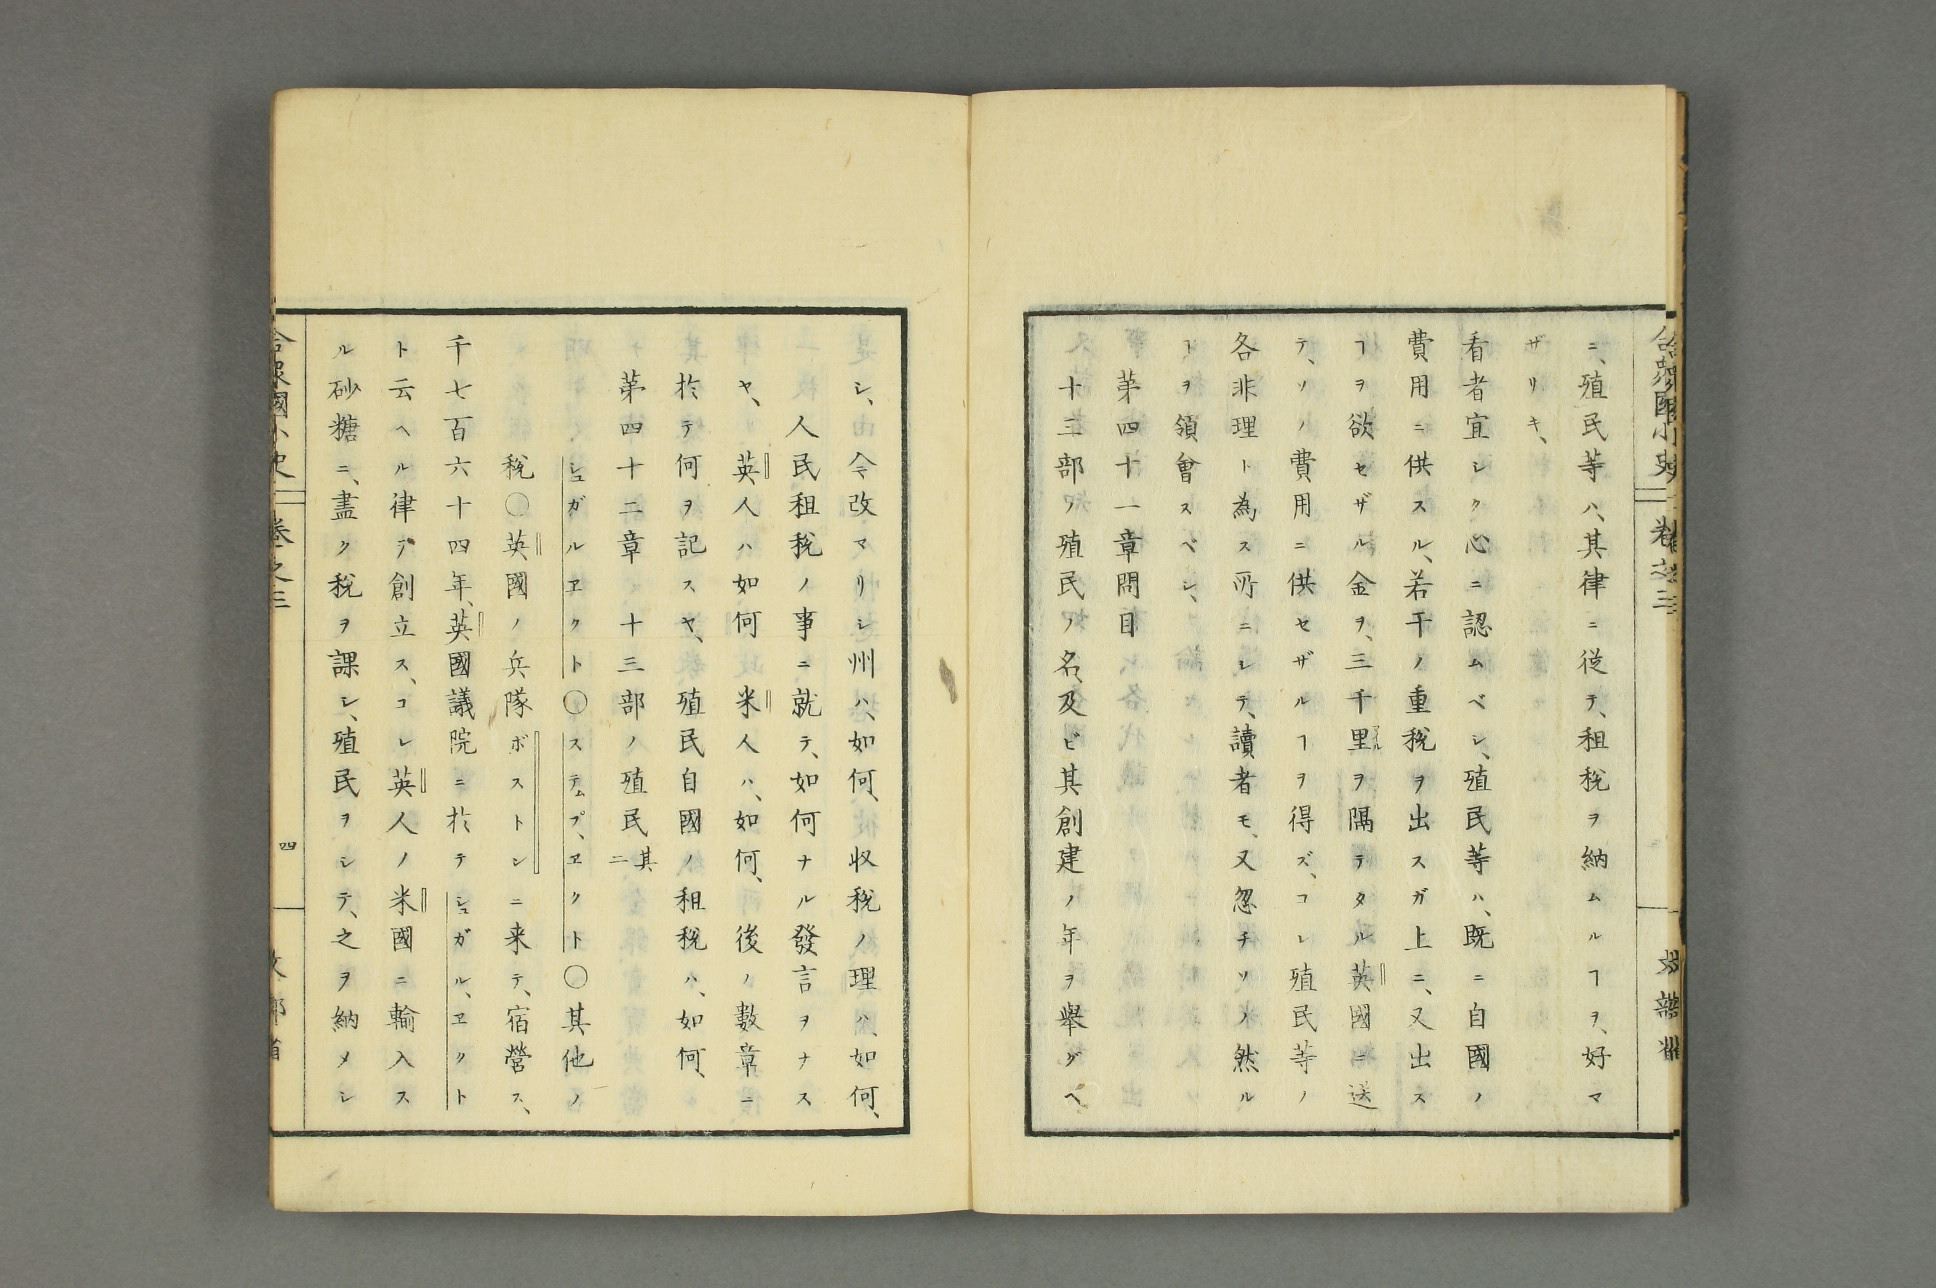 ニ、殖民等ハ、其律ニ從テ、租税ヲ納ムルヿヲ、好マ
ザリキ、
看者宜シク心ニ認ムベシ、殖民等ハ、既ニ自國ノ
費用ニ供スル、若干ノ重税ヲ出スガ上ニ、又出ス
ヿヲ欲セザル金ヲ、三千里ヲ隔テタル英國ニ送
テ、ソノ費用ニ供セザルヿヲ得ズ、コレ殖民等ノ
各非理ト為ス所ニシテ、讀者モ、又忽チソノ然ル
ヿヲ領會スベシ、
第四十一章問目
十三部ノ殖民ノ名、及ビ其創建ノ年ヲ舉グベ
シ、由令改マリシ州ハ、如何、彼収税ノ理ハ、如何、
人民租税ノ事ニ就テ、如何ナル發言ヲナス
ヤ、英人ハ如何 米人ハ、如何、後ノ數章ニ
於テ何ヲ記スヤ、殖民自國ノ租税ハ、如何、
第四十二章 十三部ノ殖民 其二
シュガルヱクト〇ステムプ、ヱクト〇其他ノ
税〇英國ノ兵隊ボストンニ来テ、宿營ス、
千七百六十四年、英國議院ニ於テシュガル、ヱクト
ト云ヘル律ヲ創立ス、コレ英人ノ米國ニ輸入ス
ル砂糖ニ、盡ク税ヲ課シ、殖民ヲシテ、之ヲ納メシ
合衆國小史 巻之三
四
文部省